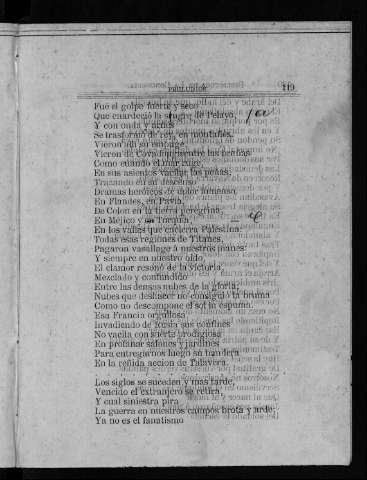 PRELUDIOS 119
Fué el golpe fuerte y seco
Que enardeció la sangre de Pelayo,
Y con onda y
Se trasformó de rey, en montañés.
Vieron en su
Vieron de Covadonga entre las peñas
Como cuando el mar ruge,
En sus asientos vacilar las peñas;
Trazando en su descenso
Dramas heróicos de valor inmenso,
En Flandes, en Pavía,
De Colon en la tierra peregrina,
En Méjico y en Turquía,
En los valles que encierra Palestina
Todas esas regiones de Titanes,
Pagaron vasallage á nuestros manes:
Y siempre en nuestro oido,
El clamor resonó de la victoria,
Mezclado y confundido
Entre las densas nubes de la gloria;
Nubes que deshacer no consiguió la bruma
Como no descompone el sol la espuma.
Esa Francia orgullosa
Invadiendo de los confines
No vacila con
En profanar salones y jardines
Para entregarnos luego su bandera
En la reñida accion de Talavera.
Los siglos se suceden y mas tarde,
Vencido el extranjero se retira,
Y cual siniestra pira
La guerra en nuestros campos brota y arde;
Ya no es el fanatismo